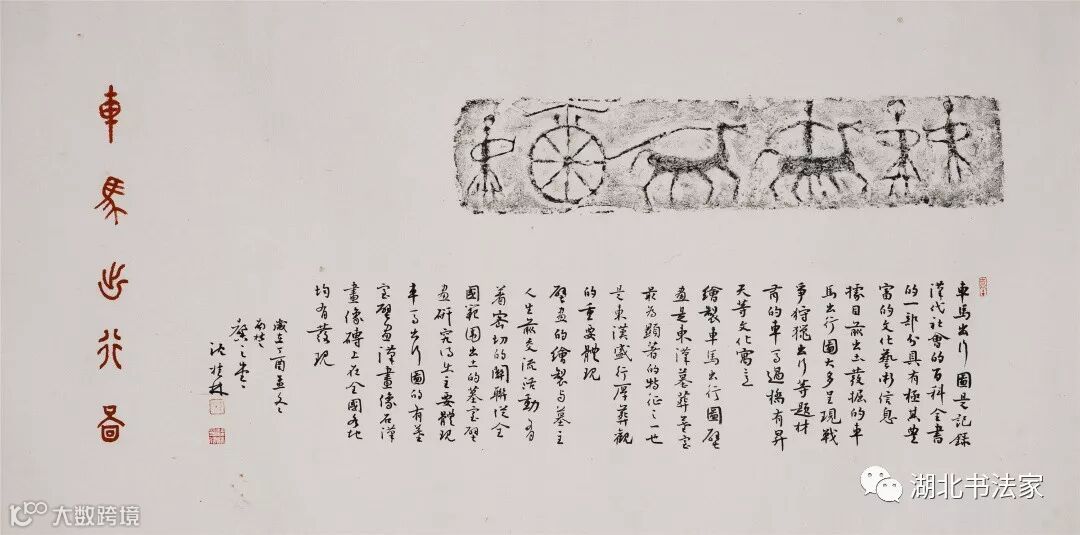 車馬出行圖
車馬出行圖是記録
漢代社會的百科全書
的一部分具有極其豐
富的文化藝術信息
據目前出土發掘的車
馬出行圖大多呈現戰
爭狩獵出行等題材
的車馬過橋有昇
天等文化寓意
繪製車馬出行圖壁
畫是東漢墓葬墓室
最為顯著的特征之一也
是東漢盛行厚葬觀
的重要體現
壁畫的繪製与墓主
人生前交流活動有
着密切的關聯從全
國範圍出土的墓室壁
畫研究得出主要體現
車馬出行圖的有墓
室壁畫漢畫像石漢
畫像磚上在全國各地
均有發現
歲在丁酉孟冬
湖北书法家
大数跨境